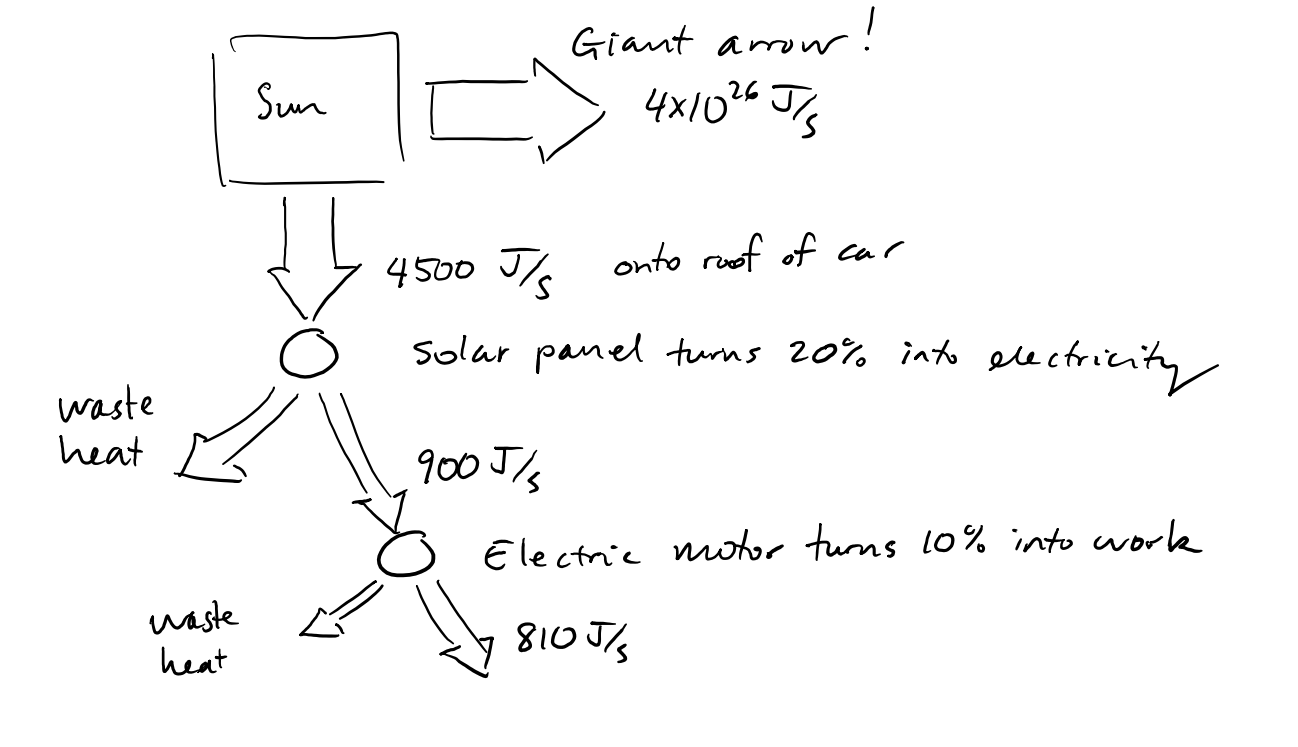 Giant arrow!
Sun
4x10²⁶ J/s
4500 J/s onto roof of car
Solar panel turns 20% into electricity
waste
heat
900 J/s
Electric motor turns 10% into work
waste
heat
810 J/s